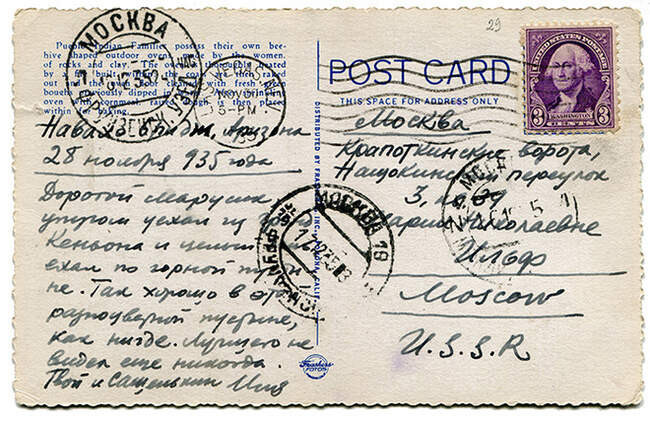 Pueblo Indian Families possess their own bee-
hive shaped outdoor ovens made by the women
of rocks and clay. The ovens thoroughly heated
by a fire built within the coals then raked
out and the floor cleaned with fresh
boughs previously dipped in
oven with cornmeal, raised dough is then placed
within for baking.
Навахо Бридж, Аризона
28 ноября 935 года
Дорогой Марусик,
утром уехал из Гранд
Кеньона и целый день
ехал по горной пусты
не. Так хорошо в этой
разноцветной пустыне,
как нигде. Лучшего не
видел еще никогда.
Твой и Сашенькин Иля
DISTRIBUTED BY CALIF.
Fearless
FOTOS
29
POST CARD
THIS SPACE FOR ADDRESS ONLY
Москва
Крапоткинские ворота,
Нащокинский переулок
3, кв.
Марии Николаевне
Ильф
Moscow
U.S.S.R
UNITED STATES POSTAGE
3 3
WASHINGTON
CENTS
МОСКВА
NOV
5-PM
МОСКВА 19